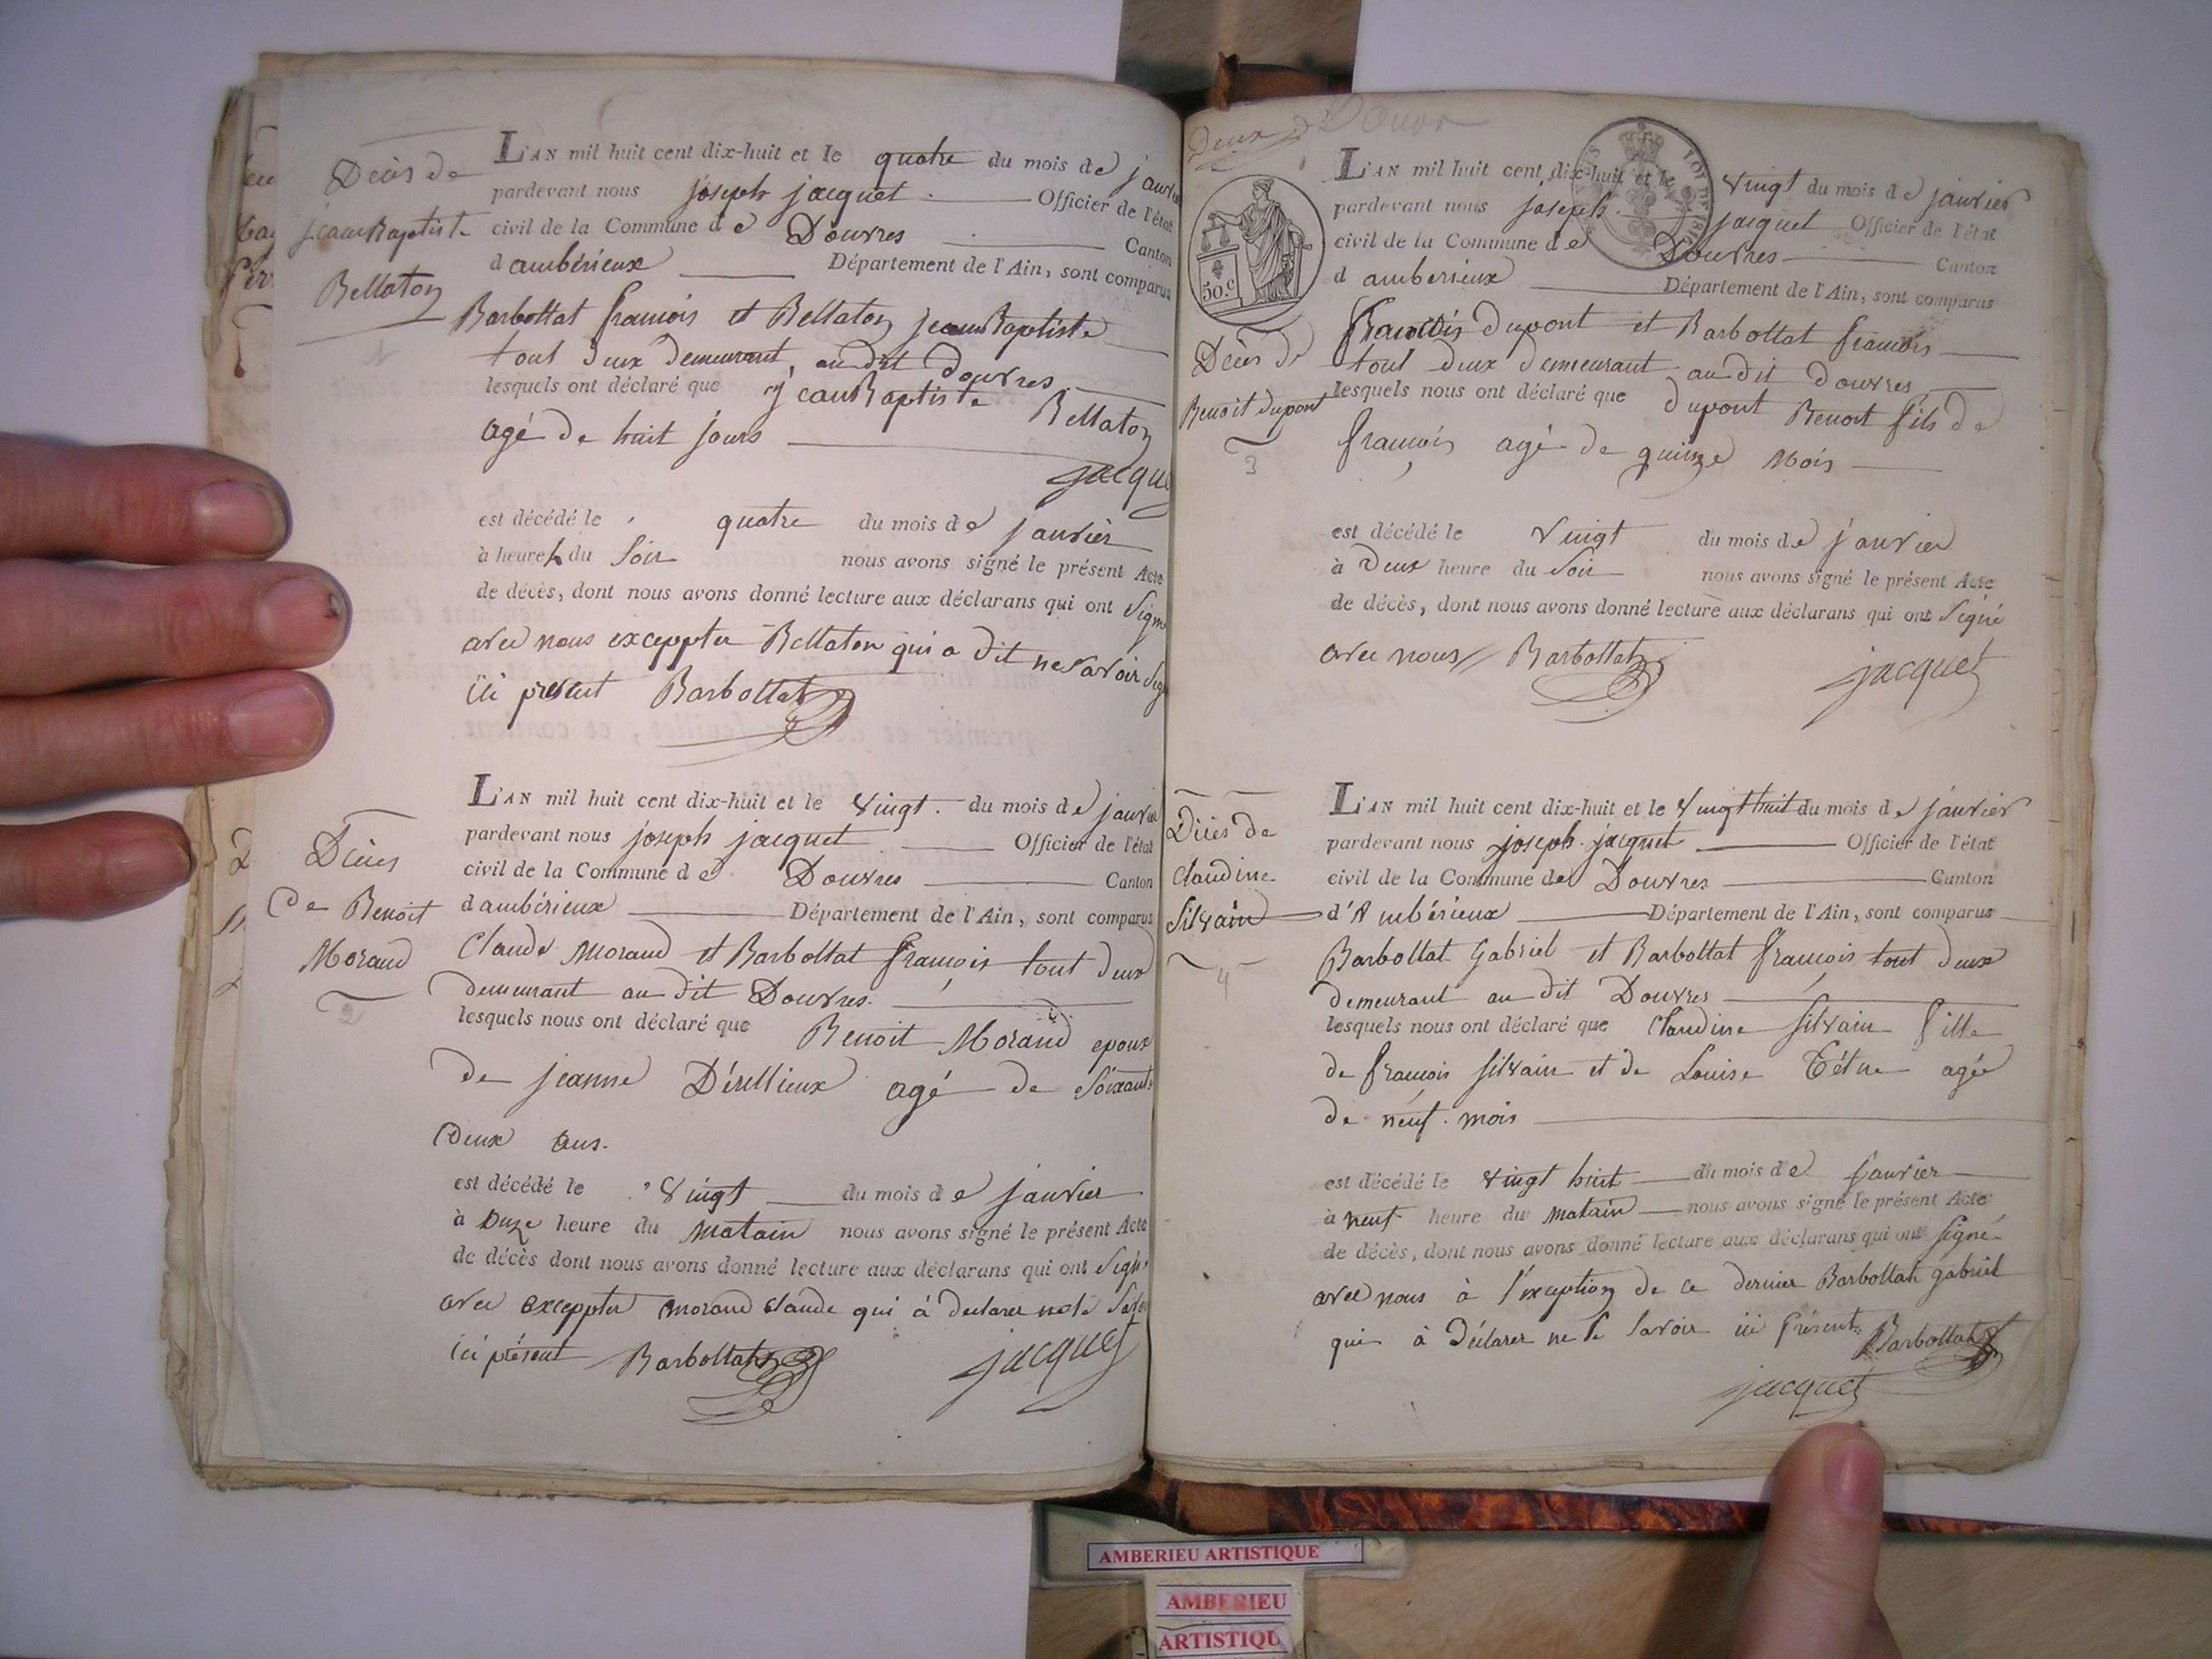 Décès de
jean Baptiste
Bellaton
1
L'AN mil huit cent dix-huit et le quatre du mois de janvier
pardevant nous joseph jacquet Officier de l'état
civil de la Commune de Douvres Canton
d'ambérieux Département de l'Ain, sont comparus
Barbollat françois et Bellaton jean Baptiste
tout deux demeurant au dit Douvres
lesquels ont déclaré que jean Baptiste Bellaton
agé de huit jours
jacque
est décédé le quatre du mois de janvier
à heure du Soir nous avons signé le présent Acte
de décès, dont nous avons donné lecture aux déclarans qui ont Signé
avec nous exceppter Bellaton qui a dit ne savoir
ici présent Barbollat
Décès
de Benoit
Morand
2
L'AN mil huit cent dix-huit et le vingt du mois de janvier
pardevant nous joseph jacquet Officier de l'état
civil de la Commune de Douvres Canton
d'ambérieux Département de l'Ain, sont comparus
Claude Morand et Barbollat françois tout deux
demeurant au dit Douvres.
lesquels nous ont déclaré que Benoit Morand epoux
de jeanne agé de Soixante
Deux ans.
est décédé le vingt du mois de janvier
à onze heure du matain nous avons signé le présent Acte
de décès dont nous avons donné lecture aux déclarans qui ont Signé
avec exceppter morand Claude qui à declarer
ici présent Barbollat jacquet
Deux Douvr
50.c
LOI DE 1816
Décès de
Benoit dupont
3
L'AN mil huit cent dix-huit et le vingt du mois de janvier
pardevant nous joseph jacquet Officier de l'état
civil de la Commune de Douvres Canton
d'amberieux Département de l'Ain, sont comparus
François dupont et Barbollat françois
tout deux demeurant au dit douvres
lesquels nous ont déclaré que dupont Benoit fils de
françois agé de quinze mois
est décédé le vingt du mois de janvier
à Deux heure du Soir nous avons signé le présent Acte
de décès, dont nous avons donné lecture aux déclarans qui ont Signé
avec nous Barbollat jacquet
Décès de
Claudine
Silvain
4
L'AN mil huit cent dix-huit et le vingt huit du mois de janvier
pardevant nous joseph jacquet Officier de l'état
civil de la Commune de Douvres Canton
d'Ambérieux Département de l'Ain, sont comparus
Barbollat Gabriel et Barbollat françois tout deux
demeurant au dit Douvres
lesquels nous ont déclaré que Claudine Silvain fille
de françois Silvain et de Louise Tétue agée
de neuf mois
est décédé le vingt huit du mois de janvier
à neuf heure du matain nous avons signé le présent Acte
de décès, dont nous avons donné lecture aux déclarans qui ont Signé
avec nous à l'exception de ce dernier Barbollat gabriel
qui à Déclarer ne le savoir ici Présent Barbollat
jacquet
AMBERIEU ARTISTIQUE
AMBERIEU
ARTISTIQU